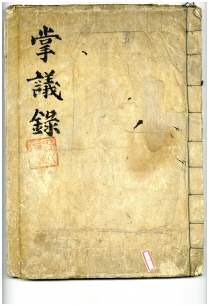 掌議錄